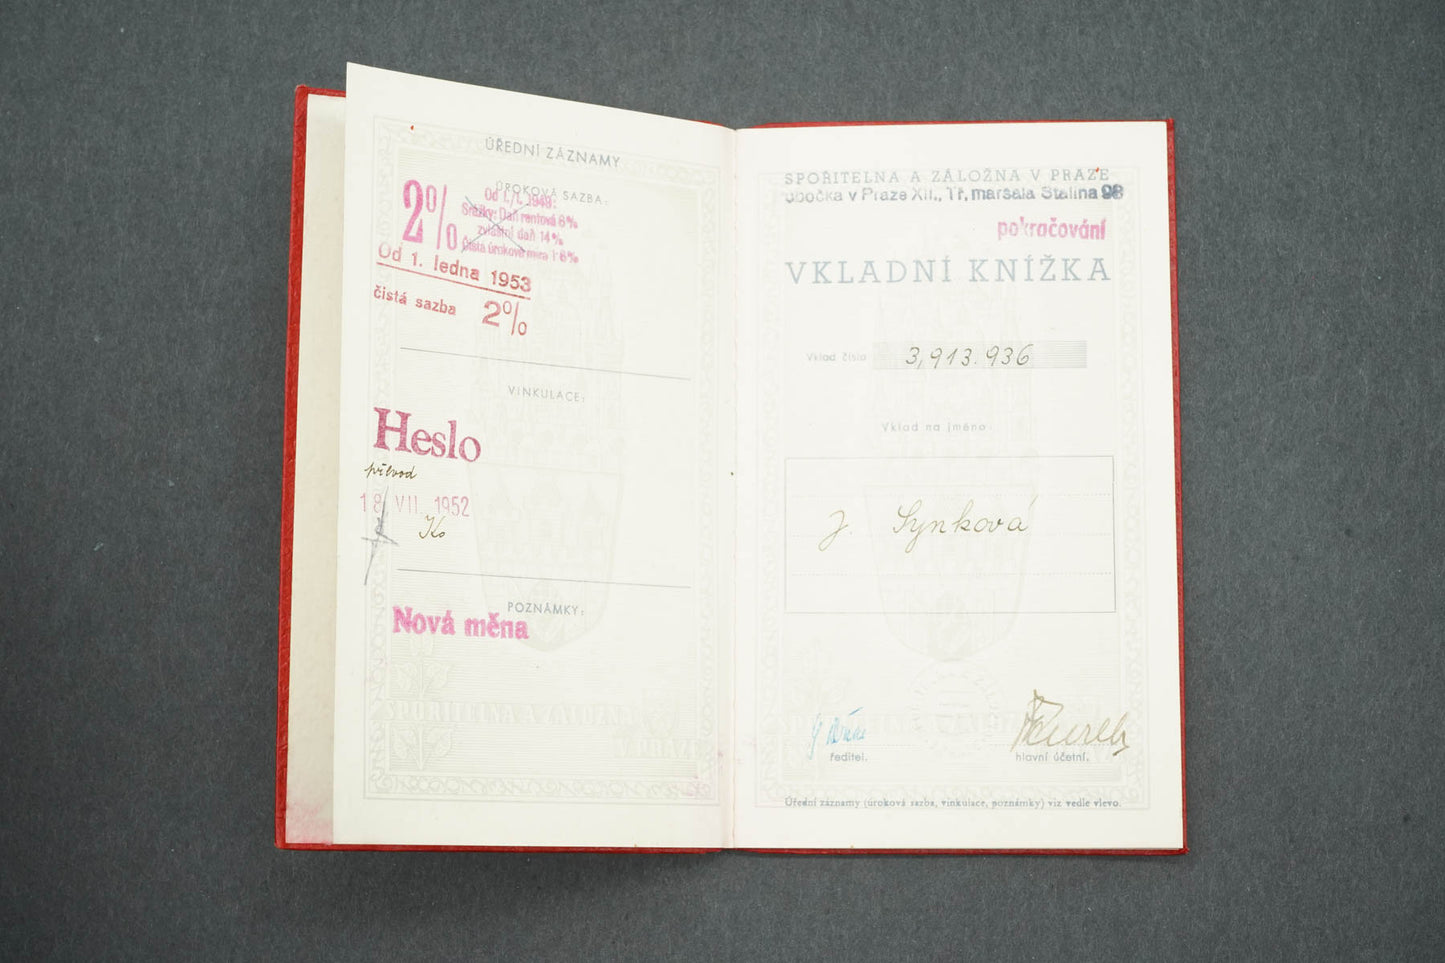 ÚŘEDNÍ ZÁZNAMY
ÚROKOVÁ SAZBA:
2%
Od 1./I. 1949:
Srážky: Daň rentová 6%
zvláštní daň 14%
Čistá úroková míra 1·6%
Od 1. ledna 1953
čistá sazba 2%
VINKULACE:
Heslo
převod
18 VII. 1952
Ko
POZNÁMKY:
Nová měna
SPOŘITELNA A ZÁLOŽNA V PRAZE
SPOŘITELNA A ZÁLOŽNA V PRAZE
pobočka v Praze XII., Tř. maršala Stalina 98
pokračování
VKLADNÍ KNÍŽKA
Vklad číslo 3,913.936
Vklad na jméno
J. Synková
ředitel.
hlavní účetní.
Úřední záznamy (úroková sazba, vinkulace, poznámky) viz vedle vlevo.